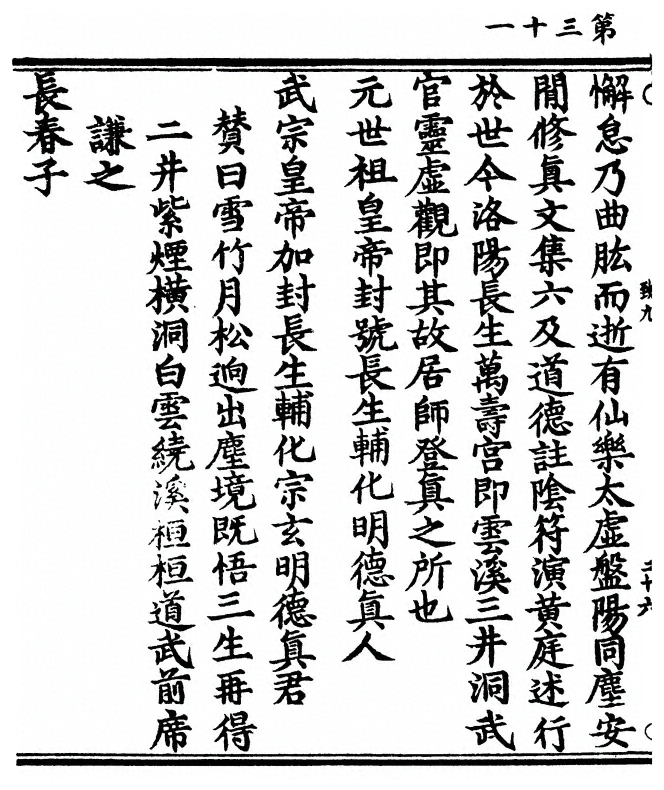 第三十一
致九
二十六
懈怠乃曲肱而逝有仙樂太虛盤陽同塵安
閒修眞文集六及道德註陰符演黄庭述行
於世今洛陽長生萬壽宫即雲溪三井洞武
官靈虛觀即其故居師登眞之所也
元世祖皇帝封號長生輔化明德眞人
武宗皇帝加封長生輔化宗玄明德眞君
賛曰雪竹月松逈出塵境既悟三生再得
二井紫煙橫洞白雲繞溪桓桓道武前席
謙之
長春子